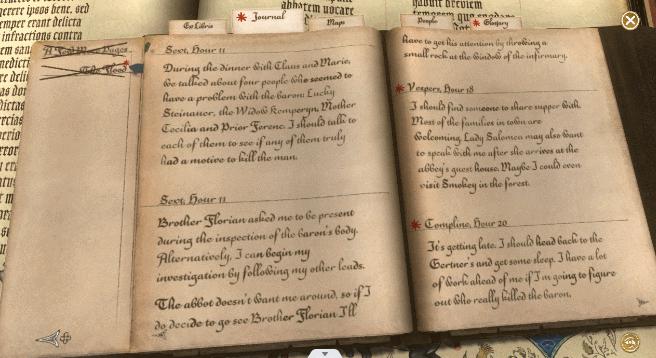 Ex Libris
Journal
Maps
People
Glossary
A Few More Pages
The Flood
Sext, Hour 11
During the dinner with Claus and Marie,
we talked about four people who seemed to
have a problem with the baron: Lucky
Steinauer, the Widow Kemperyn, Mother
Cecilia and Prior Ferenc. I should talk to
each of them to see if any of them truly
had a motive to kill the man.
Sext, Hour 11
Brother Florian asked me to be present
during the inspection of the baron's body.
Alternatively, I can begin my
investigation by following my other leads.
The abbot doesn't want me around, so if I
do decide to go see Brother Florian I'll
have to get his attention by throwing a
small rock at the window of the infirmary.
Vespers, Hour 18
I should find someone to share supper with.
Most of the families in town are
welcoming. Lady Salomea may also want
to speak with me after she arrives at the
abbey's guest house. Maybe I could even
visit Smokey in the forest.
Compline, Hour 20
It's getting late. I should head back to the
Gertners and get some sleep. I have a lot
of work ahead of me if I'm going to figure
out who really killed the baron.